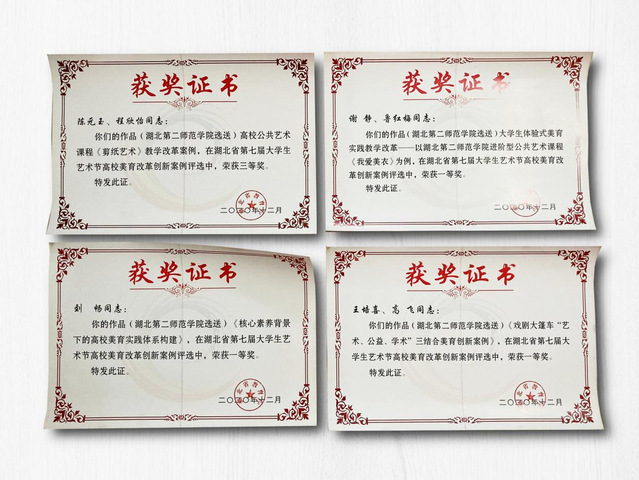 获奖证书
陈元玉、程欣怡同志：
你们的作品（湖北第二师范学院选送）高校公共艺术
课程《剪纸艺术》教学改革案例，在湖北省第七届大学生
艺术节高校美育改革创新案评选中，荣获三等奖。
特发此证。
二〇二〇年十二月
获奖证书
谢 静、鲁红梅同志：
你们的作品（湖北第二师范学院选送）大学生体验式美育
实践教学改革——以湖北第二师范学院进阶型公共艺术课程
《我爱美衣》为例，在湖北省第七届大学生艺术节高校美育改
革创新案例评选中，荣获一等奖。
特发此证。
二〇二〇年十二月
获奖证书
刘 畅同志：
你的作品（湖北第二师范学院选送）《核心素养背景
下的高校美育实践体系构建》，在湖北省第七届大学生艺
术节高校美育改革创新案例评选中，荣获一等奖。
特发此证。
二〇二〇年十二月
获奖证书
王培喜、高 飞同志：
你们的作品（湖北第二师范学院选送）《戏剧大篷车“艺
术、公益、学术”三结合美育创新案例》，在湖北省第七届大
学生艺术节高校美育改革创新案例评选中，荣获一等奖。
特发此证。
二〇二〇年十二月